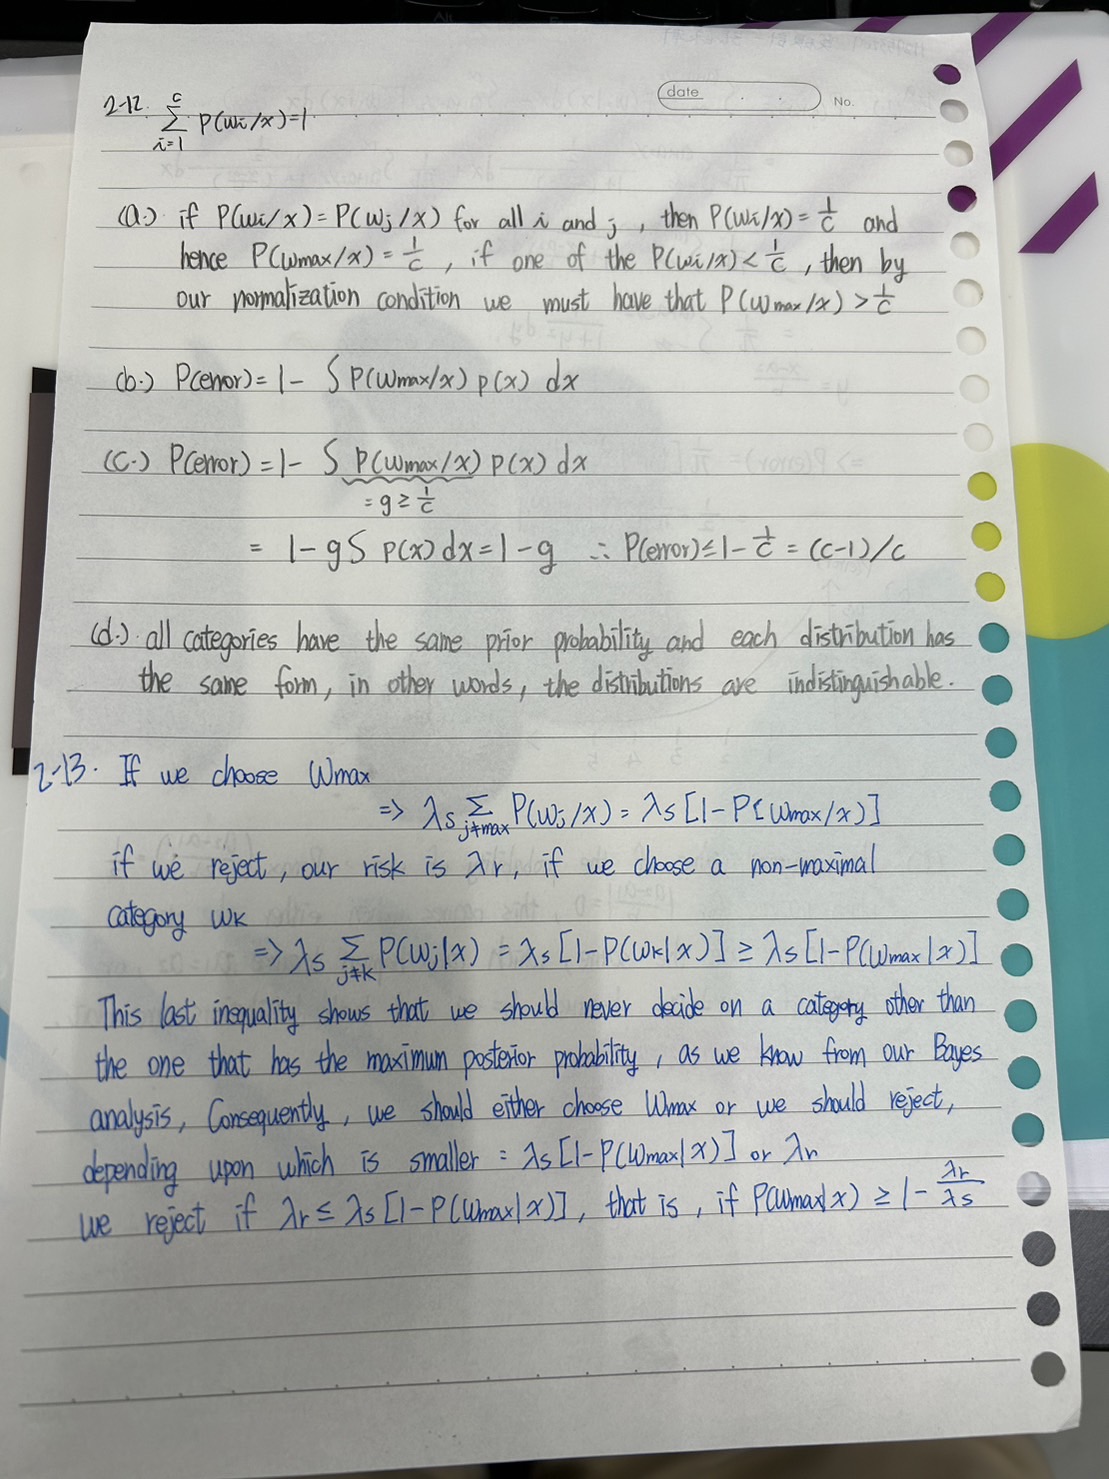 date
No.
2-12. $\sum_{i=1}^{c} P(\omega_i/x)=1$
(a.) if P(ωi/x) = P(ωj/x) for all i and j , then P(ωi/x) = 1/c and
hence P(ωmax/x) = 1/c , if one of the P(ωi/x) < 1/c , then by
our normalization condition we must have that P(ωmax/x) > 1/c
(b.) P(error) = 1- ∫ P(ωmax/x) p(x) dx
(c.) P(error) = 1- ∫ P(ωmax/x) p(x) dx
= g ≥ 1/c
= 1-g∫ p(x) dx = 1-g ∴ P(error) ≤ 1- 1/c = (c-1)/c
(d.) all categories have the same prior probability and each distribution has
the same form, in other words, the distributions are indistinguishable.
2-13. If we choose ωmax
=> λs Σ_{j≠max} P(ωj/x) = λs [1-P[ωmax/x)]
if we reject, our risk is λr, if we choose a non-maximal
category ωk
=> λs Σ_{j≠k} P(ωj|x) = λs [1-P(ωk|x)] ≥ λs [1-P(ωmax|x)]
This last inequality shows that we should never decide on a category other than
the one that has the maximum posterior probability, as we know from our Bayes
analysis, Consequently, we should either choose ωmax or we should reject,
depending upon which is smaller = λs [1-P(ωmax|x)] or λr
we reject if λr ≤ λs [1-P(ωmax|x)], that is, if P(ωmax|x) ≥ 1- λr/λs